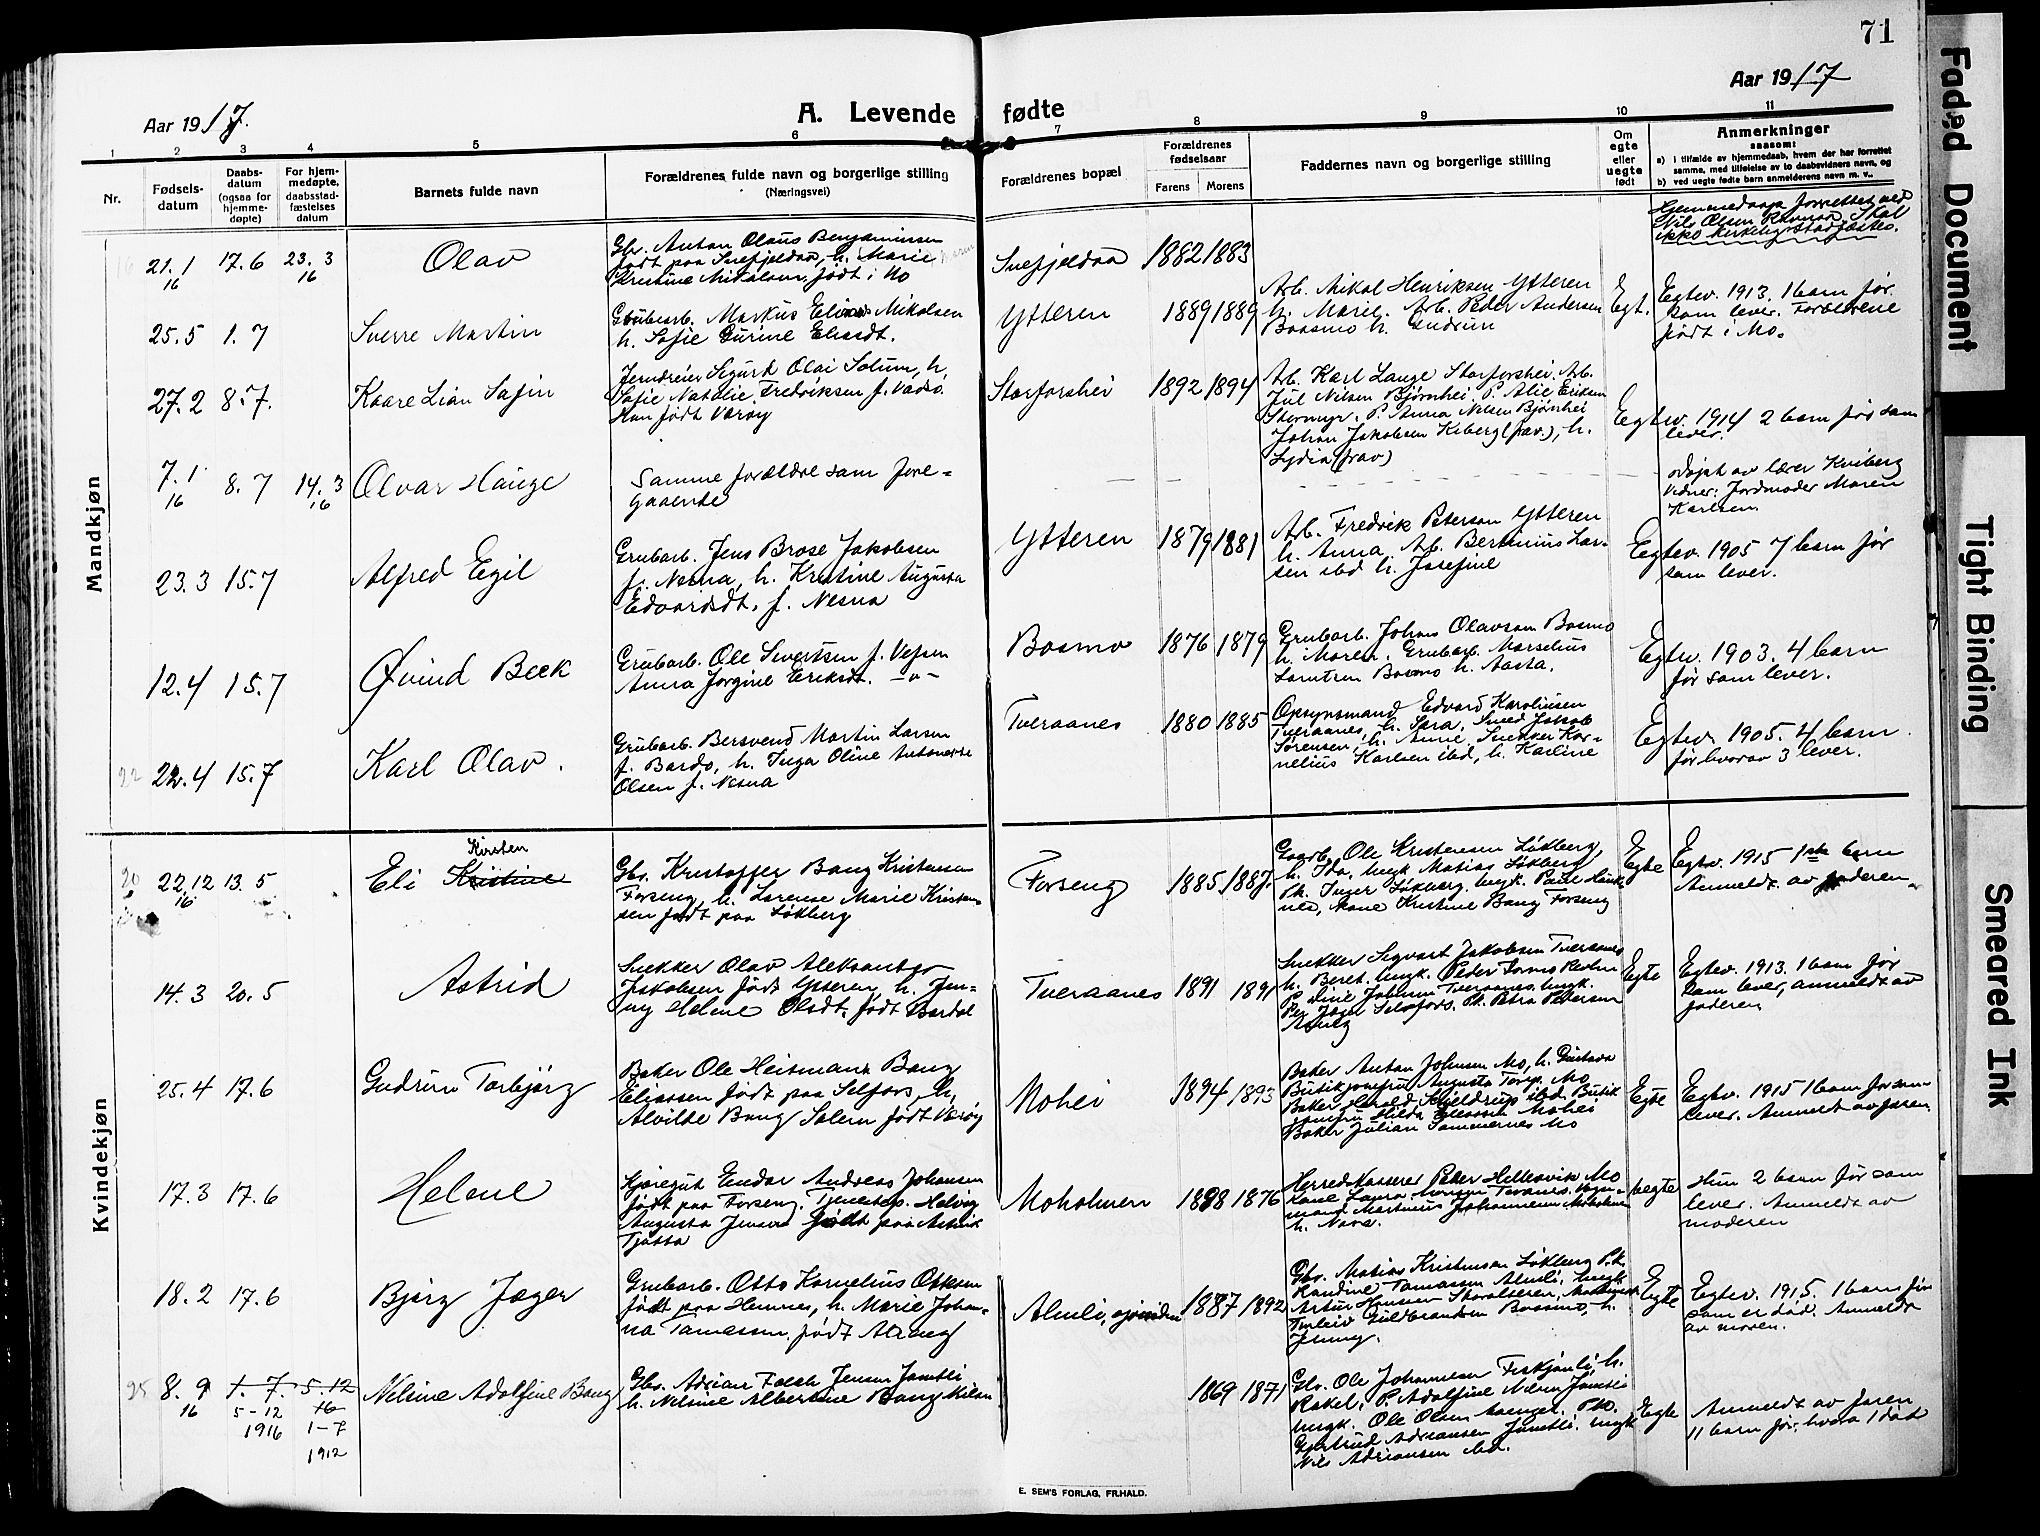 71
Aar 1917.
A. Levende fødte
Aar 1917
1 2 3 4 5 6 7 8 9 10 11
Nr.
Fødsels-
datum
Daabs-
datum
(ogsaa for
hjemme-
døpte)
For hjem-
medøpte,
daabsstad-
fæstelses
datum
Barnets fulde navn
Forældrenes fulde navn og borgerlige stilling
(Næringsvei)
Forældrenes bopæl
Forældrenes
fødselsaar
Farens Morens
Faddernes navn og borgerlige stilling
Om
egte
eller
uegte
født
Anmerkninger
saasom:
a) i tilfælde av hjemmedaab, hvem der har forrettet
samme, med tilføielse av to daabsvidners navn, og
b) ved uegte fødte barn anmelderens navn m. v..
Mandkjøn
16 21.1 17.6 23.3
16 16
Olav
Gbr. Anton Olaus Benjaminsen
født paa Snefjeldaa, h. Marie
Kristine Nikolsen født i Mo
Snefjeldaa 1882 1883
Hjemmedaap forrettet ved
Nils Olsen Ravnaa. Skal
ikke kirkelig stadfæstes.
25.5 1.7
Sverre Martin
Grubearb. Markus Mikalsen
h. Sofie Gurine Elisdt.
Ytteren 1889 1889
Arb. Nikol Henriksen Ytteren
h. Marie. Arb. Peder Andersen
Baasmo h. Gudrun
Egt.
Egtev. 1913. 1 barn før
som lever. Forældrene
født i Mo.
27.2 8.7.
Kaare Lian Sofin
Jerndreier Sigurd Olai Solum, h.
Sofie Natalie Fredriksen f. Vadsø.
Han født Værøy
Storforshei 1892 1894
Arb. Karl Lange Storforshei. Arb.
Jul Nilsen Bjørnhei. P. Alie Eriksen
Stormyr. P. Anna Nilsen Bjørnhei
Johan Jakobsen Kiberg (frav.), h.
Lydia (frav)
Egtev. 1914 2 barn før som
lever.
7.1 8.7 14.3
16 16
Olvar Hauge
Samme forældre som fore-
gaaende
av lærer Kviberg
Vidner: Jordmoder Maren
Karlsen.
23.3 15.7
Alfred Egil
Grubarb. Jens Brose Jakobsen
f. Nesna, h. Kristine Augusta
Edvardsdt. f. Nesna
Ytteren 1879 1881
Arb. Fredrik Peterson Ytteren
h. Anna. Arb. Bertinius Lar-
sen ibd h. Josefine
Egtev. 1905 7 barn før
som lever.
12.4 15.7
Øvind Beck
Grubarb. Ole Sivertsen f. Vefsen
Anna Jorgine Eriksdt. -"-
Bosmo 1876 1879
Grubarb. Johans Olavsen Bosmo
h. Maren. Grubarb. Marselius
Bosmo h. Aasta.
Egtev. 1903. 4 barn
før som lever.
22 22.4 15.7
Karl Olav.
Grubarb. Bersvend Martin Larsen
f. Bardo, h. Inga Oline Antonette
Olsen f. Nesna
Tveraanes 1880 1885
Opsynsmand Edvard Karolinsen
Tveraanes, h. Sara. Smed Jakob
Sørensen, h. Anne. Snekker Kor-
nelius Karlsen ibd, h. Karline
Egtev. 1905. 4 barn
før hvorav 3 lever.
Kvindekjøn
20 22.12 13.5
16
Kirsten
Eli Kristine
Gbr. Kristoffer Bang Kristensen
Forseng, h. Lorense Marie Kristen-
sen født paa Løkberg
Forseng 1885 1887.
Gaarb. Ole Kristensen Løkberg,
h. Ida, Ungk. Matias Løkberg
Pk. Inger Løkberg. Ungk. Paul
Kone Kristine Bang Forseng
Egte
Egtev. 1915 1ste barn
Anmeldt av faderen.
14.3 20.5
Astrid
Snekker Olav Aleksander
Jakobsen født Ytteren h. Jen-
ny Helene Olsdt. født Bardal
Tveraanes 1891 1891
Snekker Sigvart Jakobsen Tveraanes
h. Beret. Ungk. Peder
P. Line Johnsen Tveraanes. Ungk.
Per Jager Selsfors. Pk. Petra Pedersen
Egte
Egtev. 1913. 1 barn før
som lever, anmeldt av
faderen
25.4 17.6
Gudrun Torbjørg
Baker Ole Heitmann Bang
Eliassen født paa Selfors, h.
Alvilde Bang Solem født Værøy
Mohei 1894 1893
Baker Anton Johnsen Mo, h. Gustava
Butikjomfru Augusta Torp. Mo
Baker Harald Skjeldrup ibd. Butik
jomfru Hilda Eliassen Mohei
Baker Julian Sommernes Mo
Egte
Egtev. 1915 1 barn før som
lever. Anmeldt av faren
17.3 17.6
Helene
Kjøregut Endar Andreas Johansen
født paa Forseng. Tjenestep. Helvig
Augusta Jensen født paa
Tjøtta
Moholmen 1888 1876
Herredskasserer Peter Hellesvik Mo
Kone Laura
Martinus Johannesen Moholmen
h. Nora.
uegte
Hun 2 barn før som
lever. Anmeldt av
moderen
18.2 17.6
Bjørg Jæger
Grubarb. Otto Kornelius Ottesen
født paa Hemnes, h. Marie Johan-
na Tomassen, født Alteng
Almli, 1887 1892
Gbr. Matias Kristensen Løkberg P.k.
Randine Tomassen Almli, Ungk
Artur Hansen
Torleiv Guldbrandsen Bossmo, h.
Jenny.
Egte
Egtev. 1915. 1 barn før
som er død. Anmeldt
av moren.
25 8.9 1.7. 5.12
16 5-12 16
1916 1-7
1912
Nelsine Adolfine Bang
Gbr. Adrian Falch Jensen Jamtli
h. Nelsine Albertine Bang Nilsen
1869 1871
Gbr. Ole Johannesen Fiskjønli h.
Rakel, P. Adolfine Nilsen Jamtli
Ungk. Ole Olsen Pk.
Gjertrud Adriansen Jamtli. Ungk
Nils Adriansen ibd.
Egte
Anmeldt av faren
11 barn før, hvorav 1 død
E. SEM'S FORLAG, FR.HALD.
Faded Document
Tight Binding
Smeared Ink